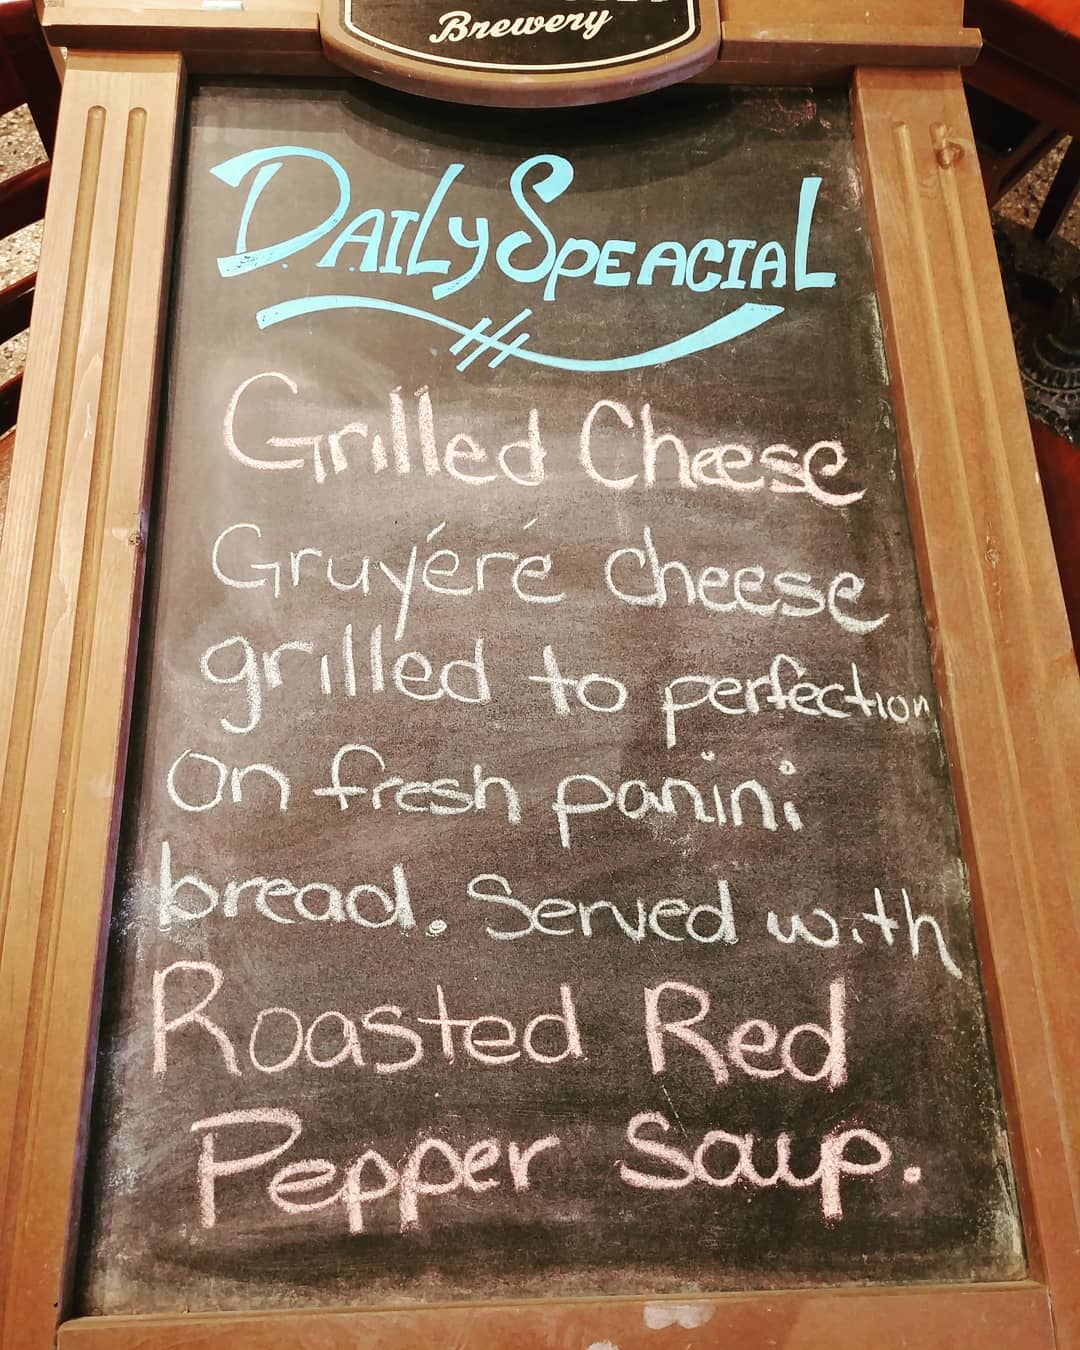 Brewery
DAILY SPEACIAL
Grilled Cheese
Gruyéré cheese
grilled to perfection
on fresh panini
bread. Served with
Roasted Red
Pepper Soup.